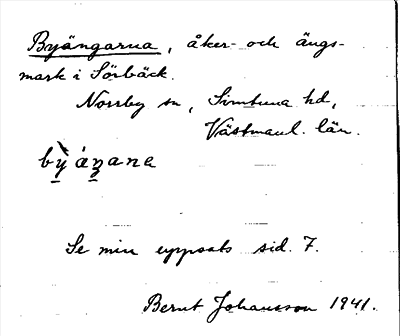 Byängarna, åker- och ängs-
mark i Sörbäck.
Norrby sn, Simtuna hd,
Västmanl. län.
Se min uppsats sid. 7.
Bernt Johansson 1941.